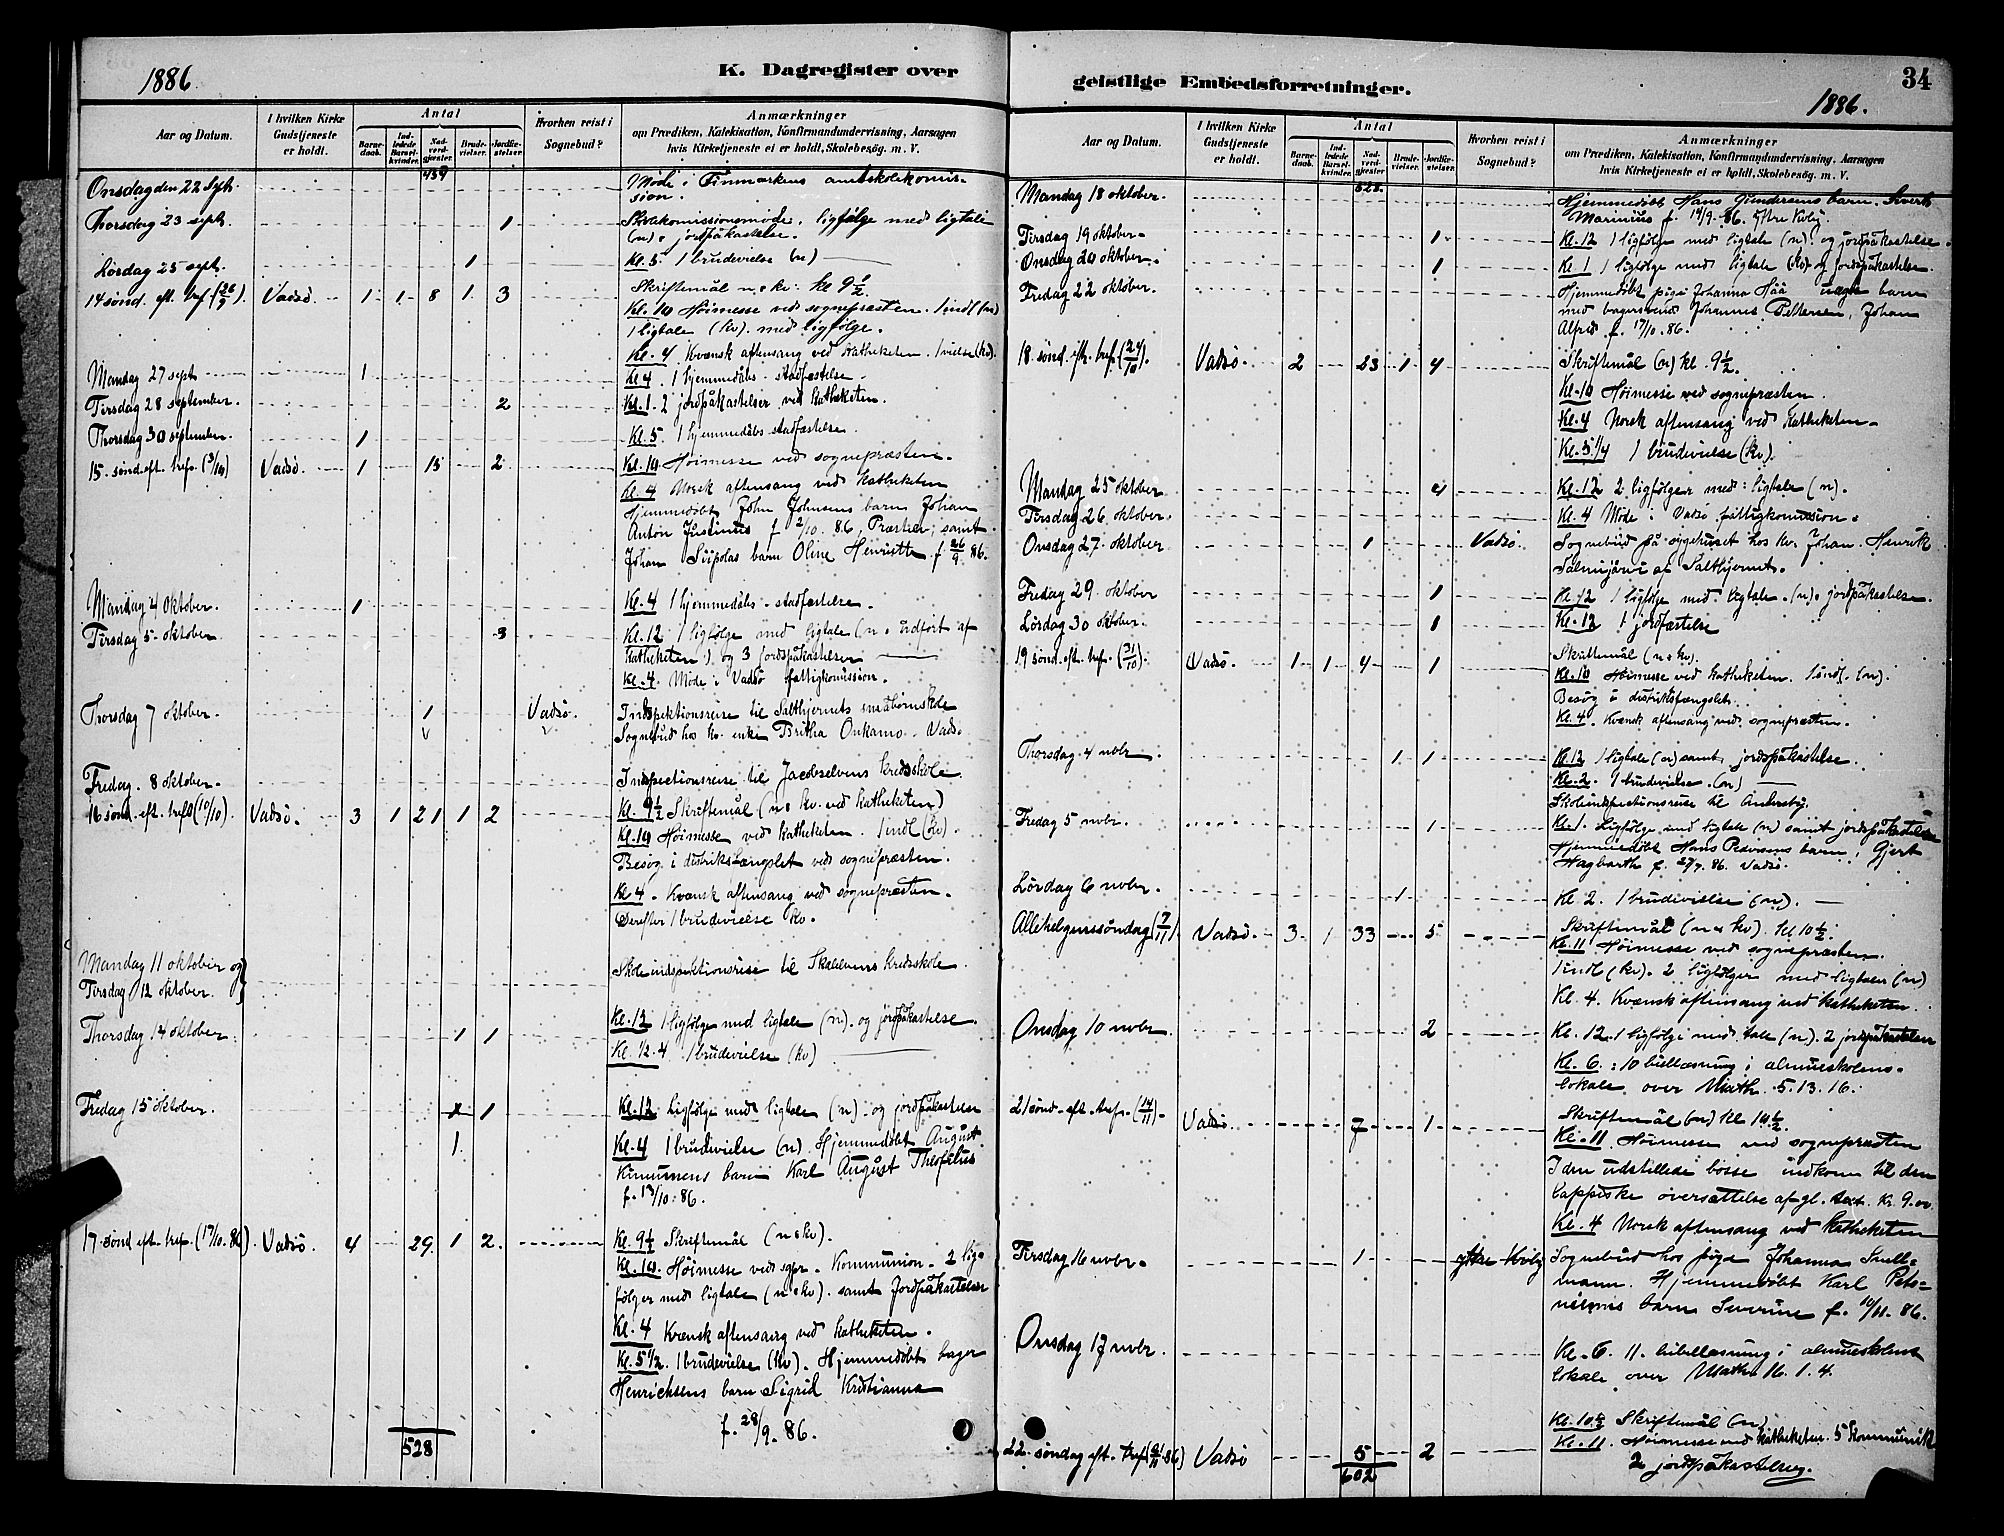 1886
K. Dagregister over
Aar og Datum.
I hvilken Kirke Gudstjeneste er holdt.
Antal
Barne-daab.
Ind-ledede Barsel-kvinder.
Nad-verd-gjester.
Brude-vielser.
Jordfæ-stelser.
Hvorhen reist i Sognebud?
Anmærkninger
om Prædiken, Katekisation, Konfirmandundervisning, Aarsagen
hvis Kirketjeneste ei er holdt, Skolebesøg. m. V.
439
Onsdag den 22 Sept. Møde i Finmarkens amtskolekomis-
sion.
Thorsdag 23 sept. 1 Skolekomissionsmøde. ligfølge med ligtale
(n). jordpåkastelse.
Lørdag 25 sept. 1 Kl. 5. 1 brudevielse (n)
14 sønd. eft. tref. (26/9). Vadsø. 1 1 8 1 3 Skriftemål n & kv. kl 9 1/2
Kl. 10 Høimesse ved sognepræsten. 1 indl (n)
1 ligtale (kv). med ligfølge.
Kl. 4 Kvænsk aftensang ved katheketen. 1 vielse (kv).
Mandag 27 sept 1 Kl. 4. 1 hjemmedåbs-stadfæstelse.
Tirsdag 28 september. 2 Kl. 1. 2 jordpåkastelser ved katheketen.
Thorsdag 30 september. 1 Kl. 5. 1 hjemmedåbs stadfæstelse.
15. sønd. eft. tref. (3/10) Vadsø. 1 15 2 Kl. 10 Høimesse ved sognepræsten.
Kl. 4 Norsk aftensang ved katheketen
Hjemmedøbt John Johnsens barn Johan
Anton Justinus f 2/10. 86. Præstier, samt
Johan Siipolas barn Oline Henriette f. 26/9. 86.
Mandag 4 oktober. 1 Kl. 4 1 hjemmedåbs-stadfæstelse.
Tirsdag 5. oktober. 3 Kl. 12 1 ligfølge med ligtale (n. udført af
katheketen) og 3 jordspåkastelser
Kl. 4. Møde i Vadsø fattigkomission.
Thorsdag 7 oktober. 1 Vadsø. Indspektionsreise til Salthjernets småbørnskole
Sognebud hos kv. enke Britha Onkamo. Vadsø
Fredag. 8 oktober. Inspectionsreise til Jacobselvens kredsskole
16 sønd. eft. tref. (10/10). Vadsø. 3 1 21 1 2 Kl. 9 1/2 Skriftemål (n & kv. ved katheketen)
Kl. 10 Høimesse ved katheketen. 1 indl (kv).
Besøg i distriktsfængslet ved sognepræsten.
Kl 4. Kvænsk aftensang ved sognepræsten.
Derefter 1 brudevielse kv.
Mandag 11 oktober og
Tirsdag 12 oktober. Skoleindspektionsreise til Skallelvens kredsskole.
Thorsdag 14 oktober. 1 1 Kl. 12 1 ligfølge med ligtale (n). og jordpåkastelse.
Kl. 1/2 4 1 brudevielse (kv)
Fredag 15 oktober. 1 Kl. 12 Ligfølge med ligtale (n). og jordpåkastelse
1 Kl. 4 1 brudevielse (n) Hjemmedøbt August
Kinnunens barn Karl August Theofilus
f. 13/10. 86.
17. sønd eft. tref. (17/10. 86) Vadsø. 4 29 1 2 Kl. 9 1/2 Skriftemål (n & kv).
Kl. 10. Høimesse ved sgpr. Kommunion. 2 lig-
følger med ligtale (n & kv). samt Jordpåkastelser
Kl. 4 Kvænsk aftensang ved katheketen.
Kl. 5 1/2. 1 brudevielse (kv). Hjemmedøbt bager
Henrichsens barn Sigrid Kristianna
f. 28/9. 86.
528
geistlige Embedsforretninger.
34
1886.
Aar og Datum.
I hvilken Kirke Gudstjeneste er holdt.
Antal
Barne-daab.
Ind-ledede Barsel-kvinder.
Nad-verd-gjester.
Brude-vielser.
Jordfæ-stelser.
Hvorhen reist i Sognebud?
Anmærkninger
om Prædiken, Katekisation, Konfirmandundervisning, Aarsagen
hvis Kirketjeneste ei er holdt, Skolebesøg. m. V.
528.
Mandag 18 oktober. Hjemmedøbt Hans Gundersens barn
Marinius f. 19/9. 86. Ytre Kvby
Tirsdag 19 oktober. 1 Kl. 12 1 ligfølge med ligtale (n). og jordpåkastelse.
Onsdag 20 oktober. 1 Kl. 1 1 ligfølge med ligtale (kv) og jordspåkastelse.
Fredag 22 oktober. Hjemmedøbt pige Johanna uægte barn
med bagersvend Johannes Pettersen, Johan
Alfred f. 17/10. 86.
18 sønd. eft. tref. (24/10). Vadsø. 2 23 1 4 Skriftemål (n) kl. 9 1/2.
Kl. 10 Høimesse ved sognepræsten.
Kl. 4 Norsk aftensang ved katheketen.
Kl. 5 1/4 1 brudevielse (kv).
Mandag 25 oktober Kl. 12 2 ligfølger med ligtale (n).
Tirsdag 26. oktober. Kl. 4 Møde i Vadsø fattigkomission.
Onsdag 27. oktober 1 Vadsø. Sognebud på sygehuset hos kv. Johan Henrik
Salmijärvi af Salthjernet.
Fredag 29. oktober 1 Kl. 12 1 ligfølge med ligtale. (n). jordpåkastelse.
Lørdag 30 oktober. 1 Kl. 12 1 jordfæstelse
19 sønd. eft. tref. (31/10). Vadsø. 1 1 4 1 Skriftemål (n & kv).
Kl. 10 Høimesse ved katheketen. 1 indl. (n).
Besøg i distriktsfængslet.
Kl. 4. Kvænsk aftensang ved sognepræsten.
Thorsdag 4 novbr 1 1 Kl. 12 1 ligtale (n) samt jordspåkastelse.
Kl. 2. 1 brudevielse (n)
Skoleindspectionsreise til Andersby.
Fredag 5 novbr. 1 Kl. 1. Ligfølge med ligtale (n) samt jordspåkastelse
Hjemmedøbt Hans Pedersens barn Gjert
Hagbarth f. 27/7. 86. Vadsø.
Lørdag 6 novbr. 1 Kl. 2. 1 brudevielse (n).
Allehelgenssøndag (7/11). Vadsø. 3 1 33 5 Skriftemål (n & kv). kl 10 1/2.
Kl. 11 Høimesse ved sognepræsten.
1 indl (kv). 2 ligfølger med ligtaler (n)
Kl. 4. Kvænsk aftensang ved katheketen.
Onsdag 10 novbr. 2 Kl. 12. 1 ligfølge med tale (n). 2 jordpåkastelser
Kl. 6. 10 bibellæsning i almueskolens
lokale over Math. 5. 13. 16.
21 sønd. eft. tref. (14/11) Vadsø. 7 1 Skriftemål (n) kl 10 1/2.
Kl. 11 Høimesse ved sognepræsten
I den udstillede bøsse indkom til den
lappiske oversættelse af gl. test. Kr 9.00
Kl. 4 Norsk aftensang ved katheketen
Tirsdag 16 novbr. 1 Ytre Kvby Sognebud hos pige Johanna Snell-
mann. Hjemmedøbt Karl Pets-
barn Severine f. 10/11. 86.
Onsdag 17 novbr. Kl. 6. 11. bibellæsning i almueskolens
lokale over Math. 16. 1. 4.
Kl. 10 1/2 Skriftemål (n)
22. søndag eft. tref. (21/11 86) Vadsø 5 2 Kl. 11. Høimesse ved katheketen. 5 Kommunik
2 jordspåkastelser.
602